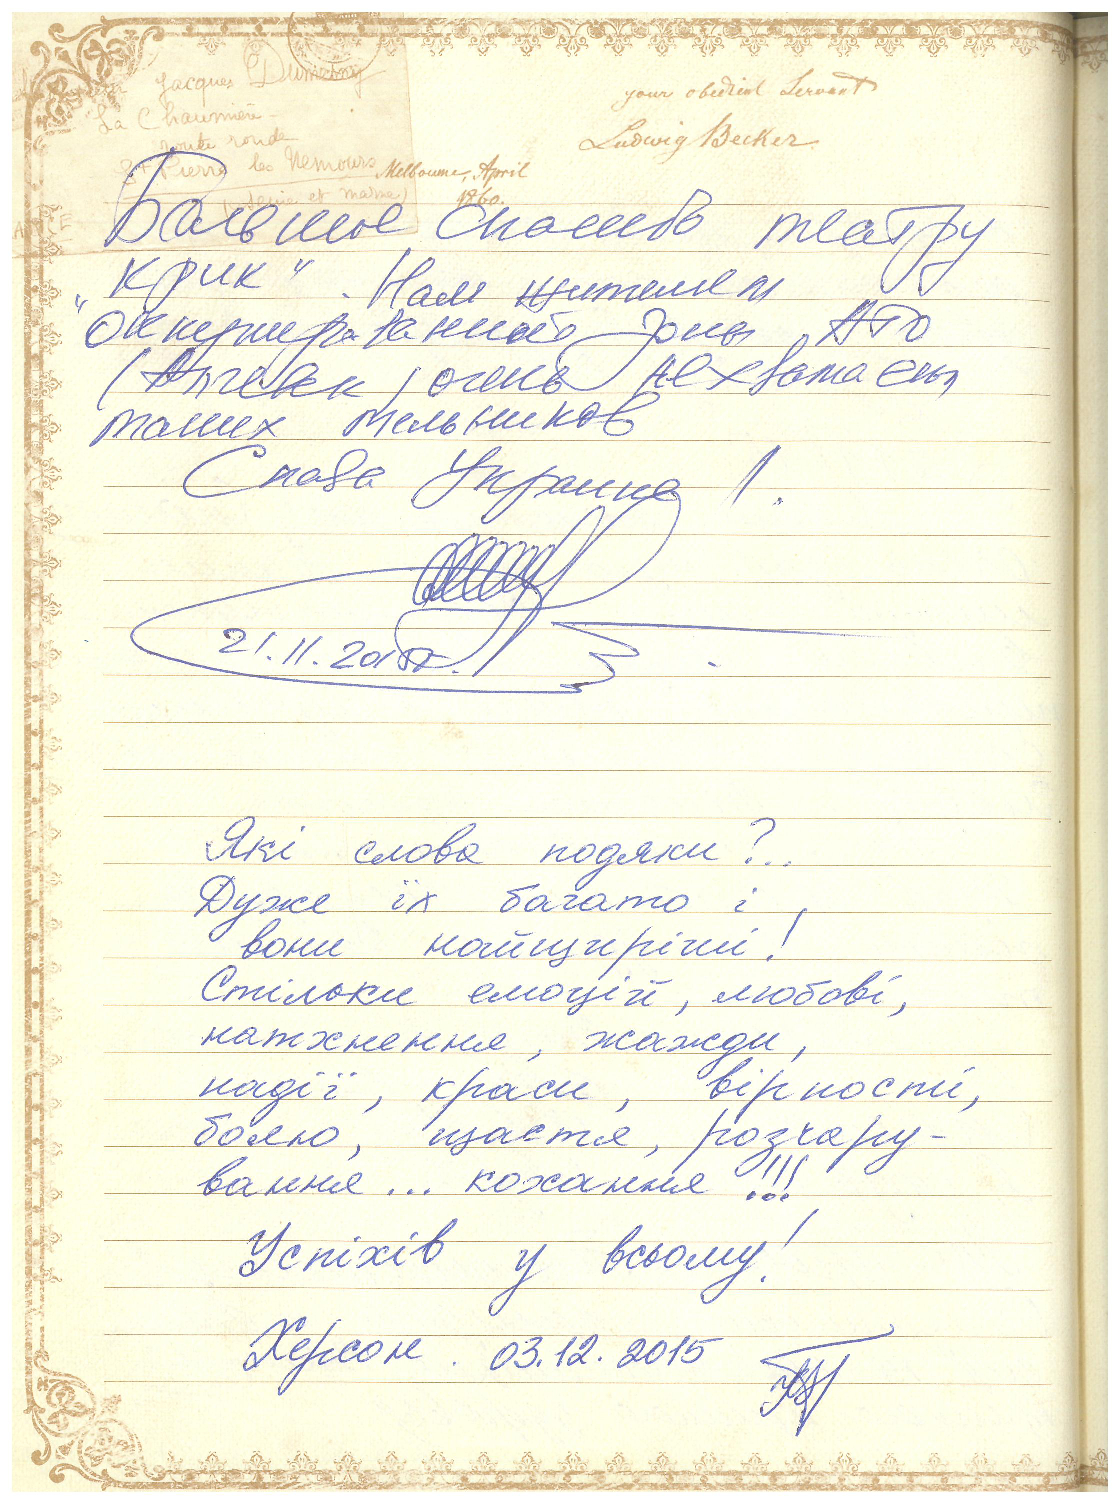 Jacques Dumesny
La Chaumière
route ronde
St Pierre les Nemours
Seine et Marne
your obedient Servant
Ludwig Becker
Melbourne, April
1860.
Большое спасибо театру
"Крик". Нам жителям
оккупированной зоны АТО
(         ) очень нехватает
таких
Слава Украине !
21.11.
Які слова подяки?..
Дуже їх багато і
вони найщиріші!
Стільки емоцій, любові,
натхнення, жажди,
надії, краси, вірності,
болю, щастя, розчару-
вання... кохання !!!
Успіхів у всьому!
Херсон. 03.12.2015